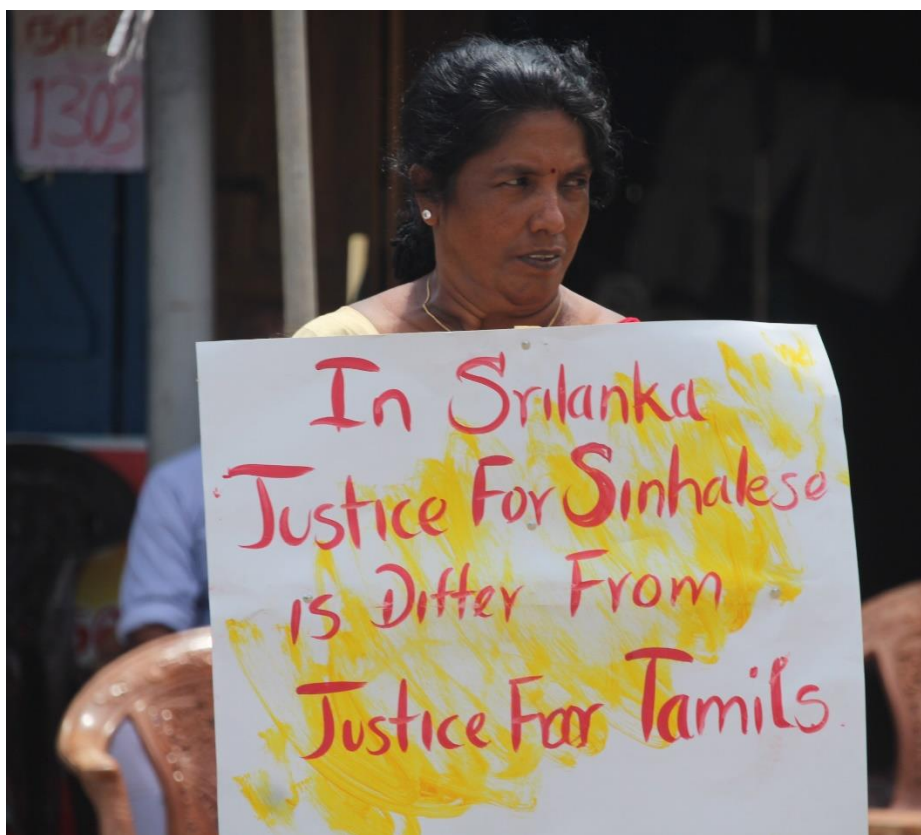 1303
In Srilanka
Justice For Sinhalese
is Differ From
Justice For Tamils